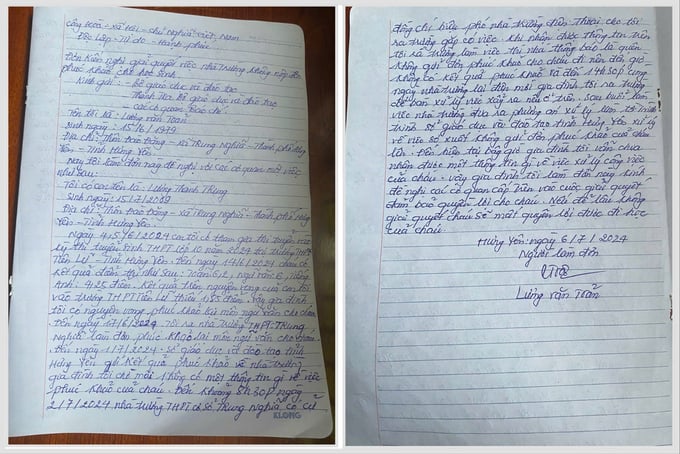 Cộng hoà - xã hội - chủ nghĩa việt Nam
Độc lập - Tự do - Hạnh phúc
Đơn kiến nghị giải quyết việc nhà trường không nộp đơn
phúc khảo cho học sinh.
Kính gửi: - Bộ giáo dục và đào tạo
- Thanh tra Bộ giáo dục và đào tạo
- các cơ quan báo chí.
Tên tôi là: Lương văn Toản
Sinh ngày: 15/6/1979
Địa chỉ: Thôn bào Bàng - xã Trung Nghĩa - Thành phố Hưng
Yên - Tỉnh Hưng Yên.
Nay tôi làm đơn này đề nghị với các cơ quan một việc
như sau:
Tôi có con tên là: Lương Thanh Trung
Sinh ngày: 15/7/2009
Địa chỉ: Thôn bào Bàng - xã Trung Nghĩa - Thành phố Hưng
Yên - Tỉnh Hưng Yên.
Ngày 4,5/6/2024 con tôi có tham gia thi tuyển vào
kỳ thi tuyển sinh THPT lớp 10 năm 2024 tại trường THPT
Tiên Lữ - Tỉnh Hưng Yên. Đến ngày 14/6/2024 cháu có
kết quả điểm thi như sau: Toán 6,2, ngữ văn 6, Tiếng
Anh: 4,25 điểm. Kết quả trên nguyện vọng của con tôi
vào trường THPT Tiên Lữ thiếu điểm. Vậy gia đình
tôi có nguyện vọng phúc khảo lại môn ngữ văn cho cháu.
Đến ngày 17/6/2024. Tôi ra nhà trường THPT: Trung
Nghĩa làm đơn phúc khảo lại môn ngữ văn cho cháu.
Đến ngày 1/7/2024 - Sở giáo dục và đào tạo tỉnh
Hưng Yên gửi kết quả phúc khảo về nhà trường
gia đình tôi chờ mãi không có một thông tin gì về việc
phúc khảo của cháu. Đến khoảng 8h30p ngày
2/7/2024 nhà trường THPT cơ sở Trung Nghĩa có cử
KLONG
đồng chí hiệu phó nhà trường điện thoại cho tôi
ra trường gặp có việc. Khi nhận được thông tin trên
tôi ra trường làm việc thì nhà trường báo là quên
không gửi đơn phúc khảo cho cháu đi nên đến giờ
không có kết quả phúc khảo và đến 14h30p cùng
ngày nhà trường lại đến mời gia đình tôi ra trường
để bàn xử lý việc xảy ra nêu ở trên. Sau buổi làm
việc nhà trường đưa ra phương án xử lý làm tờ trình
trình sở giáo dục và đào tạo tỉnh Hưng Yên xử lý
về việc sơ xuất không gửi đơn phúc khảo của cháu
lên. Đến hiện tại bây giờ gia đình tôi vẫn chưa
nhận được một thông tin gì về việc xử lý công việc
của cháu. Vậy gia đình tôi làm đơn này kính
đề nghị các cơ quan cấp trên vào cuộc giải quyết
đảm bảo quyền lợi cho cháu. Nếu để lâu không
giải quyết cháu sẽ mất quyền lợi được đi học
của cháu.
Hưng Yên: ngày 6/7/2024
Người làm đơn
Lương văn Toản